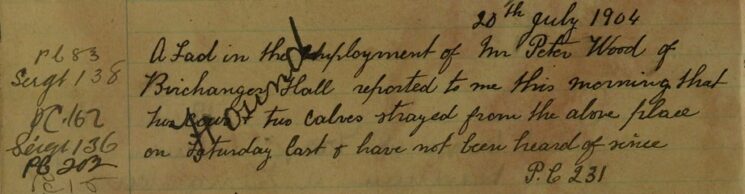 20th July 1904
A Lad in the employment of Mr Peter Wood of
Birchanger Hall reported to me this morning that
two cows & two calves strayed from the above place
on Saturday last & have not been heard of since
P.C 231
Found
PC 83
Sergt 138
PC. 162
Sergt 136
PC 202